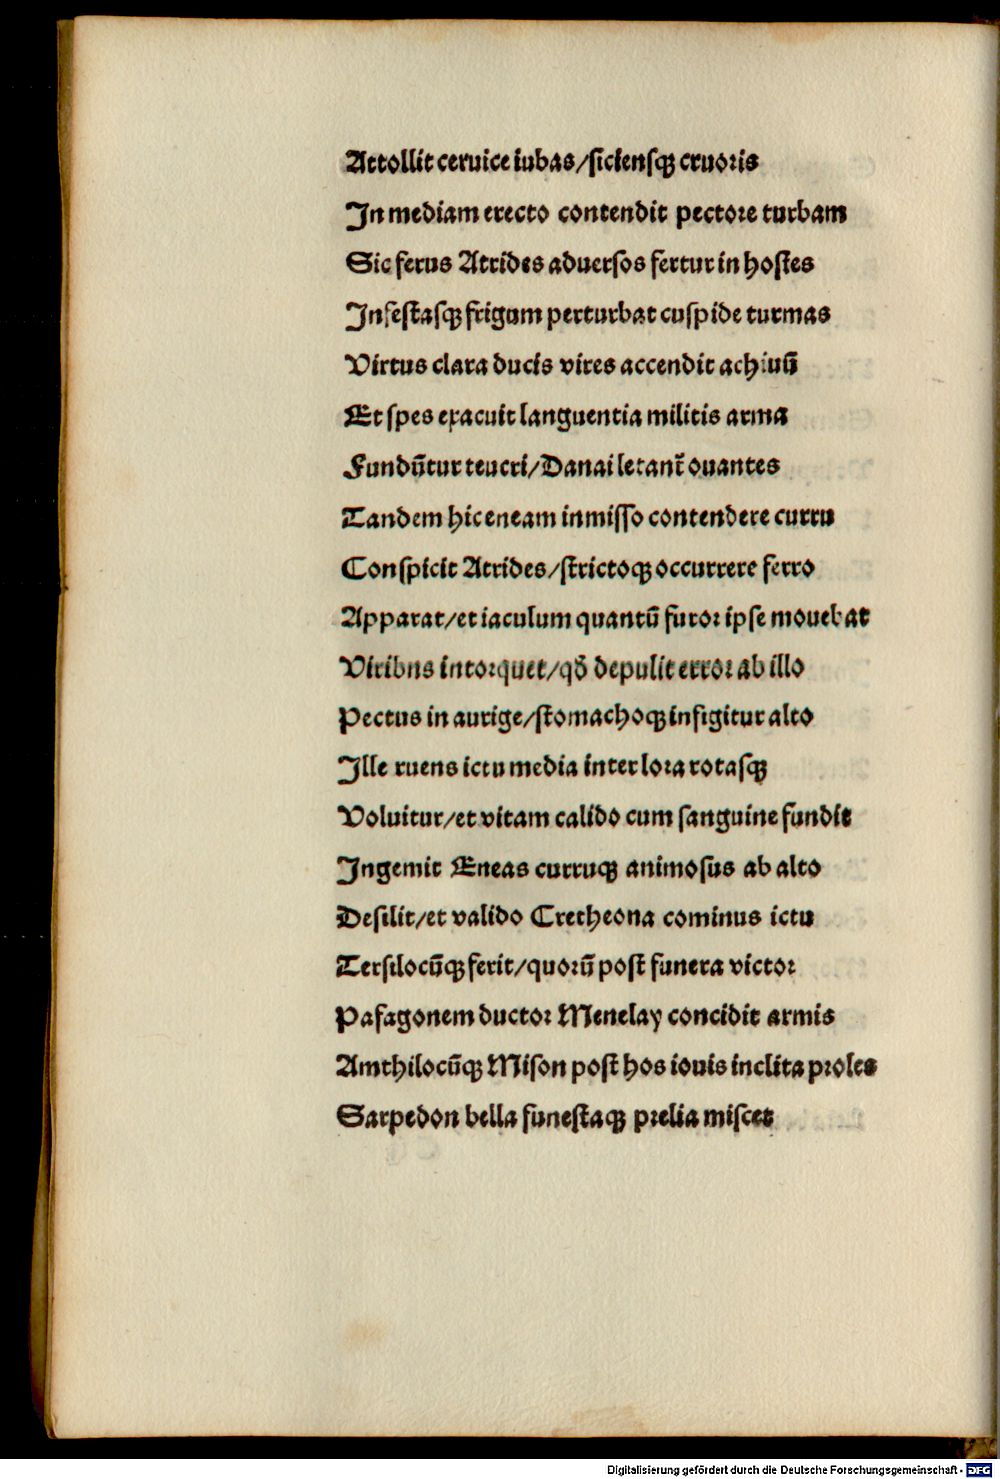 Attollit ceruice iubas/sicienſqꝫ cruoꝛis
In mediam erecto contendit pectoꝛe turbam
Sic ferus Atrides aduerſos fertur in hoſtes
Infeſtaſqꝫ frigum perturbat cuſpide turmas
Virtus clara ducis vires accendit achiuū
Et ſpes exacuit languentia militis arma
Fundūtur teucri/Danai letant̄ ouantes
Tandem hic eneam inmiſſo contendere curru
Conſpicit Atrides/ſtrictoqꝫ occurrere ferro
Apparat/et iaculum quantū furoꝛ ipſe mouebat
Viribus intoꝛquet/qď depulit erroꝛ ab illo
Pectus in aurige/ſtomachoqꝫ infigitur alto
Ille ruens ictu media inter loꝛa rotaſqꝫ
Voluitur/et vitam calido cum ſanguine fundit
Ingemit Eneas curruqꝫ animoſus ab alto
Deſilit/et valido Cretheona cominus ictu
Terſilocūqꝫ ferit/quoꝛū poſt funera victoꝛ
Pafagonem ductoꝛ Menelay concidit armis
Amthilocūqꝫ Miſon poſt hos iouis inclita pꝛoles
Sarpedon bella funeſtaqꝫ pꝛelia miſcet
Digitalisierung gefördert durch die Deutsche Forschungsgemeinschaft - DFG